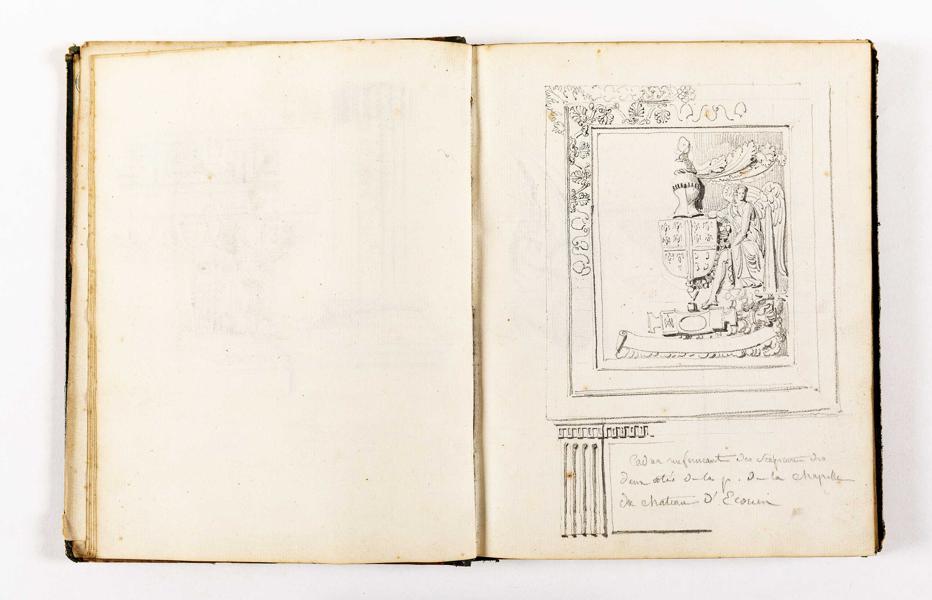 Cadre renfermant des sculptures des
deux côtés de la p. de la chapelle
du chateau d'Ecouen